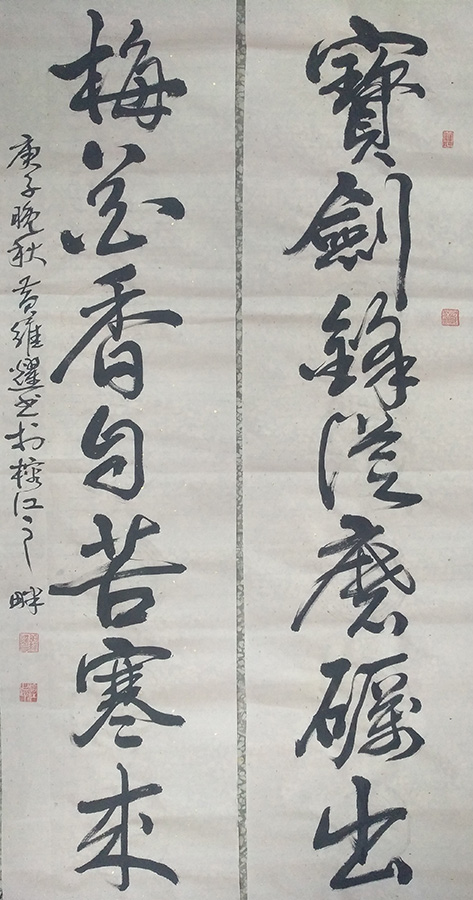 寶劍鋒從磨礪出
梅花香自苦寒來
庚子晚秋黄維耀書於榕江之畔